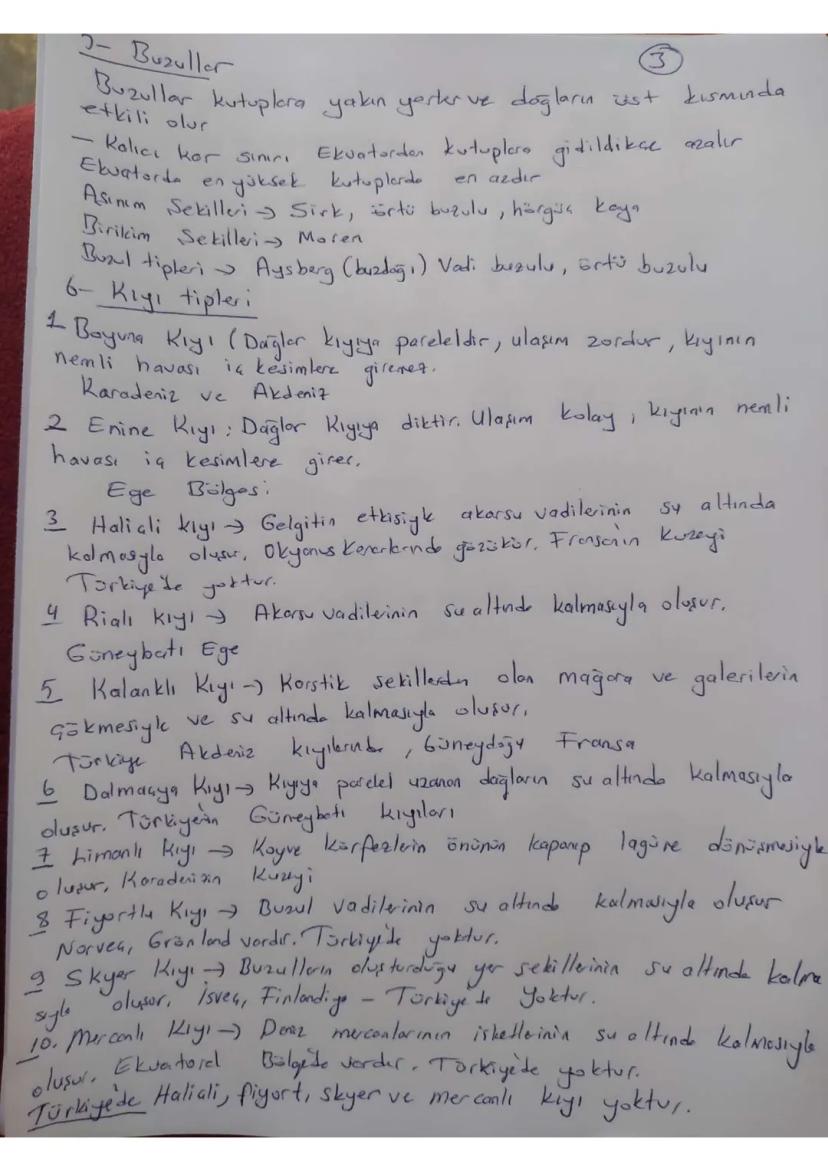 5- Buzullar
3
Buzullar kutuplara yakın yerler ve dağların üst kısmında
etkili olur
- Kalıcı kar sınırı Ekvatordan kutuplara gidildikçe azalır
Ekvatorda en yüksek kutuplarda en azdır
Aşınım Şekilleri → Sirk, örtü buzulu, hörgüç kaya
Birikim Şekilleri → Moren
Buzul tipleri → Aysberg (buzdağı) Vadi buzulu, örtü buzulu
6- Kıyı tipleri
1 Boyuna Kıyı (Dağlar kıyıya pareleldir, ulaşım zordur, kıyının
nemli havası iç kesimlere giremez.
Karadeniz ve Akdeniz
2 Enine Kıyı: Dağlar Kıyıya diktir. Ulaşım kolay, kıyının nemli
havası iç kesimlere girer.
Ege Bölgesi
3 Haliçli kıyı → Gelgitin etkisiyle akarsu vadilerinin su altında
kalmasyla oluşur. Okyanus kenarlarında gözükür. Fransa'nın kuzeyi
Türkiye'de yoktur.
4 Rialı kıyı → Akarsu vadilerinin su altında kalmasıyla oluşur.
Güneybatı Ege
5 Kalanklı Kıyı → Karstik şekillerden olan mağara ve galerilerin
çökmesiyle ve su altında kalmasıyla oluşur.
Türkiye Akdeniz kıyılarında, Güneydoğu Fransa
6 Dalmaçya Kıyı → Kıyıya parelel uzanan dağların su altında kalmasıyla
oluşur. Türkiye'nin Güneybatı kıyıları
7 Limanlı Kıyı → Koy ve körfezlerin önünün kapanıp lagüne dönüşmesiyle
oluşur, Karadenizin Kuzeyi
8 Fiyortlu Kıyı → Buzul vadilerinin su altında kalmasıyla oluşur
Norveç, Grönland vardır. Türkiye'de yoktur.
9 Skyer Kıyı → Buzulların oluşturduğu yer şekillerinin su altında kalma
sıyla oluşur. İsveç, Finlandiya - Türkiye'de Yoktur.
10. Mercanlı Kıyı → Deniz mercanlarının iskeletlerinin su altında kalmasıyla
oluşur. Ekvatoral Bölge'de vardır. Türkiye'de yoktur.
Türkiye'de Haliçli, fiyort, skyer ve mercanlı kıyı yoktur.